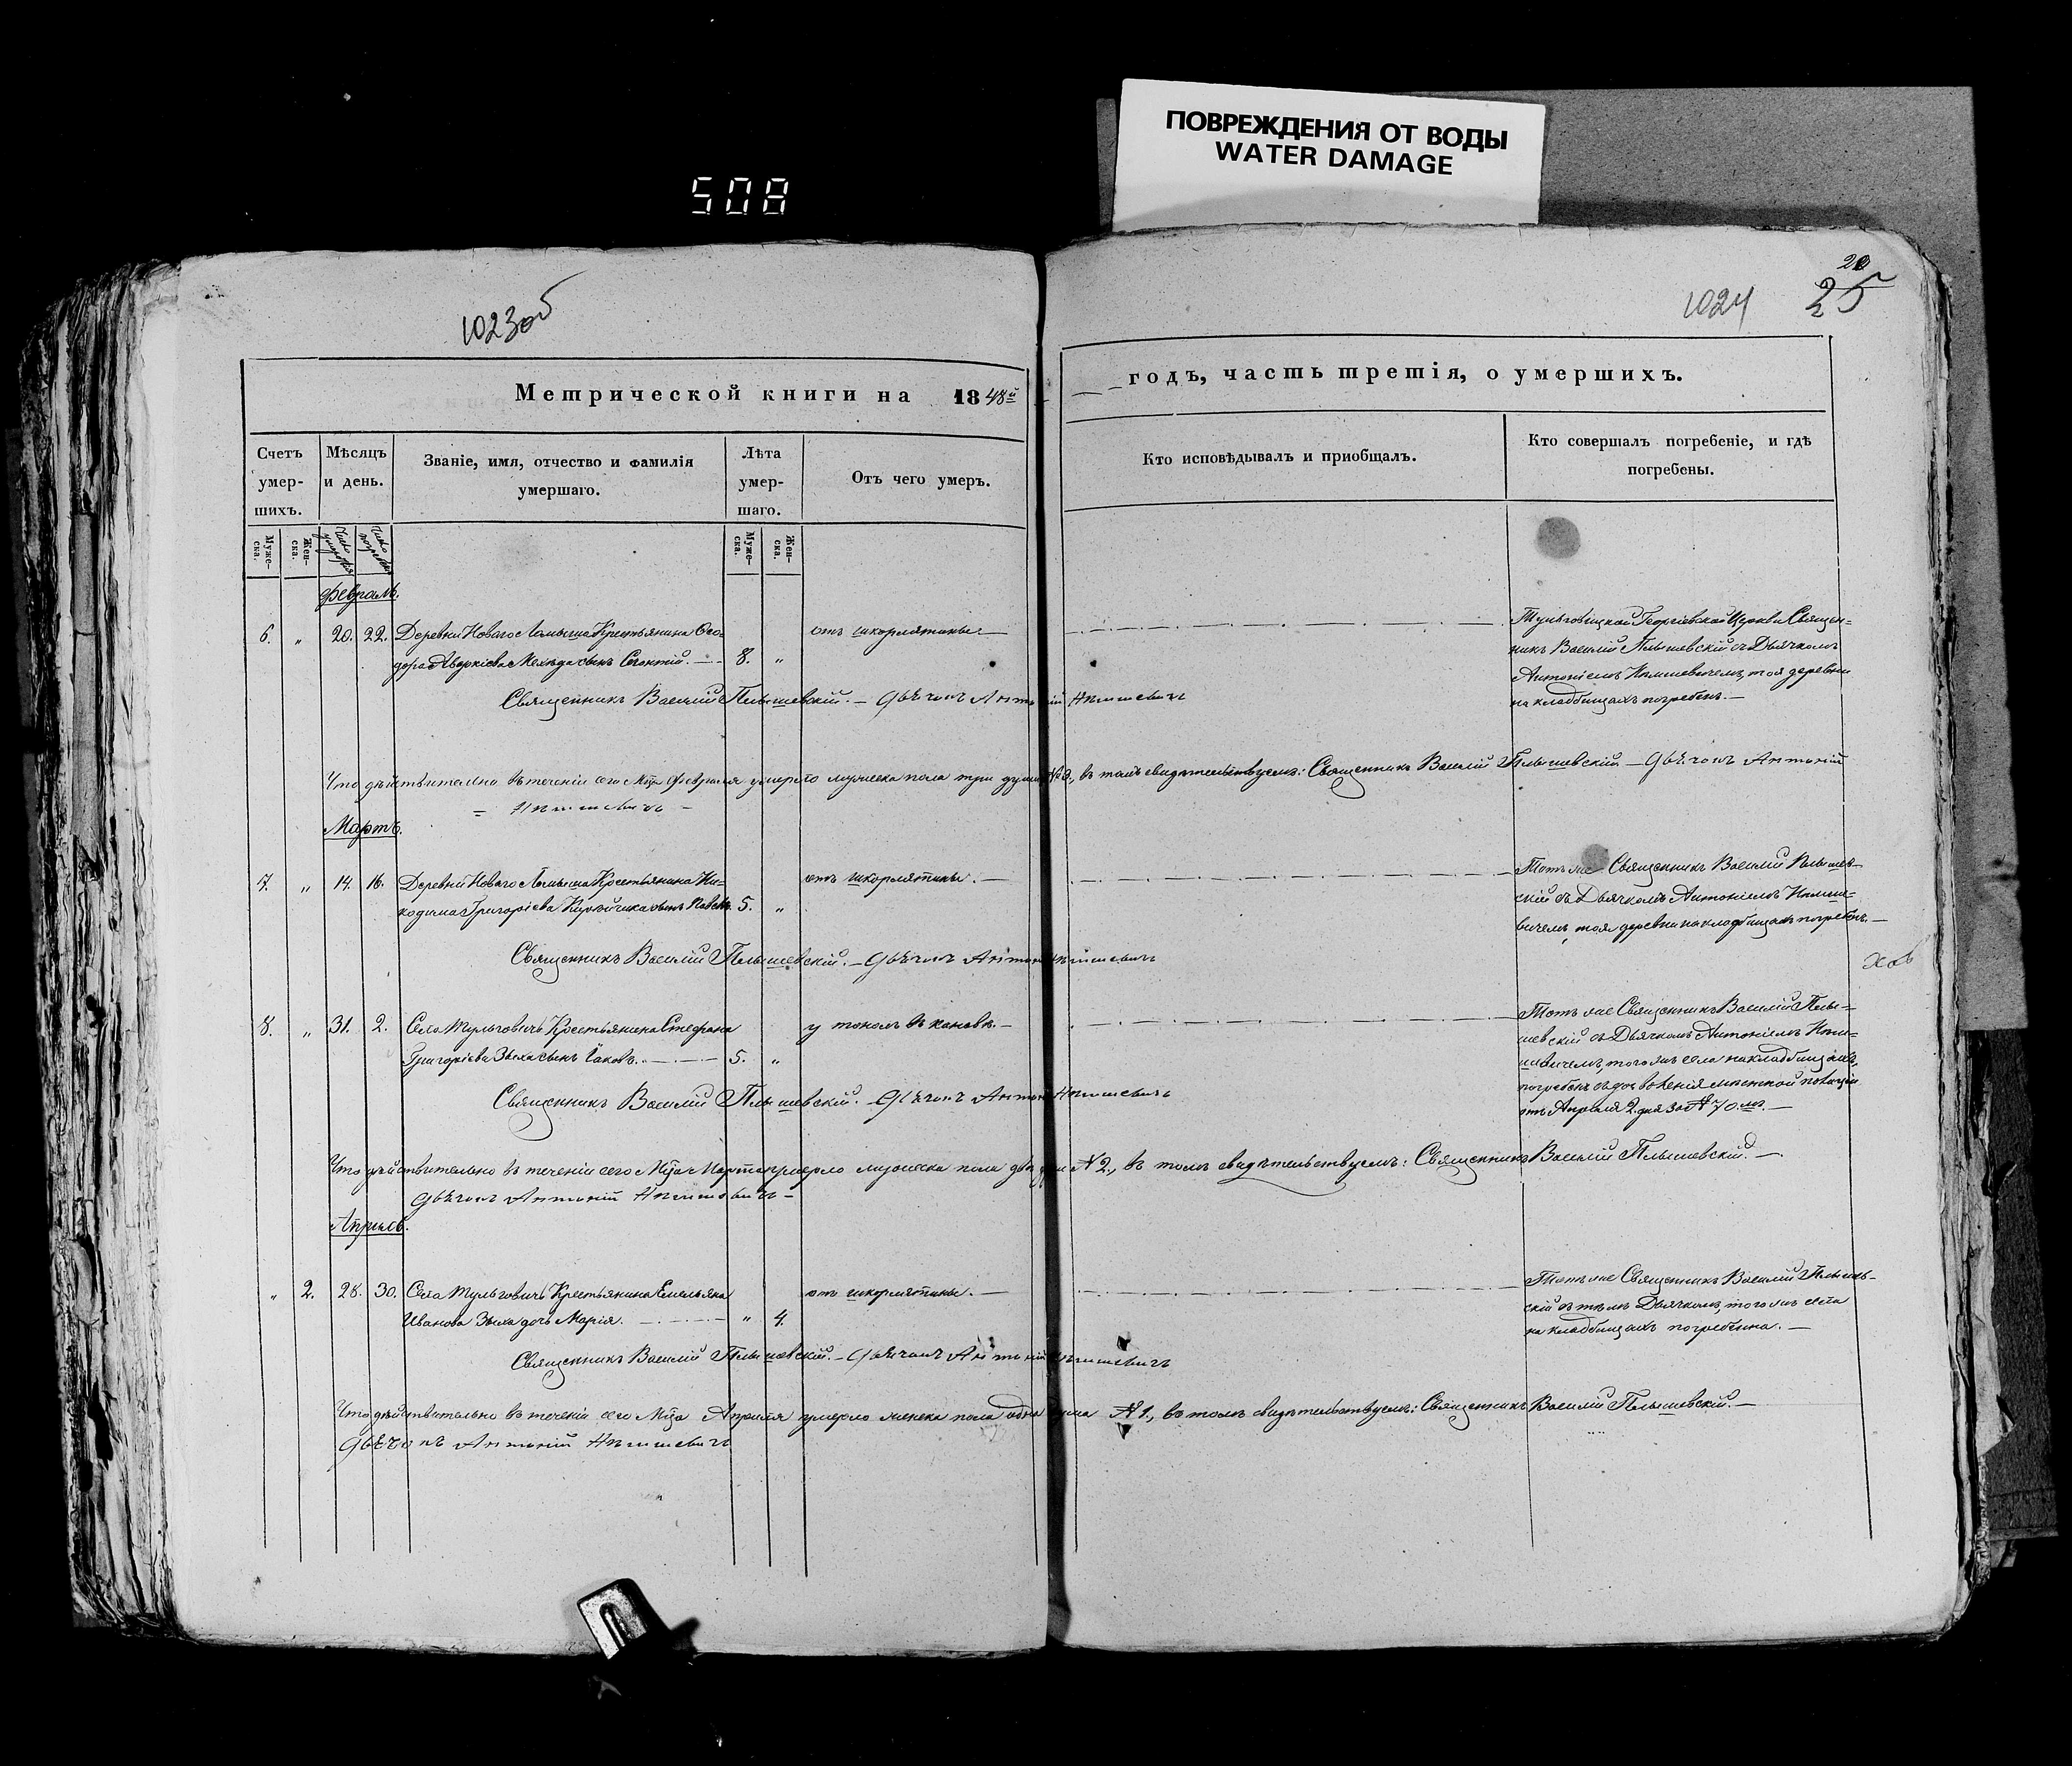 ПОВРЕЖДЕНИЯ ОТ ВОДЫ
WATER DAMAGE
508
1023об
1024
25
Метрической книги на 1848й
годъ, часть третія, о умершихъ.
Счетъ умер-шихъ.
Мѣсяцъ и день.
Званіе, имя, отчество и фамилія умершаго.
Лѣта умер-шаго.
Отъ чего умеръ.
Кто исповѣдывалъ и приобщалъ.
Кто совершалъ погребеніе, и гдѣ погребены.
Муже-ска.
Жен-ска.
Число умертвія
Число погребенія
Муже-ска.
Жен-ска.
Февраль.
6. „ 20. 22. Деревни Новаго Ломыша Крестьянина Ѳео-
дора Аверкіева сынъ 8. „
отъ шкорлятины.
Тульговицкой Георгіевской Церкви Священ-
никъ Василій Плышевскій съ Дьячкомъ
Антоніемъ тоя деревни
на кладбищахъ погребенъ.
Священникъ Василій Плышевскій. — Дьячокъ Антоній
Что дѣйствительно въ теченіи сего Мца Февраля умерло мужеска пола три души №3, въ томъ свидѣтельствуемъ: Священникъ Василій Плышевскій — Дьячокъ Антоній
Мартъ.
7. „ 14. 16. Деревни Новаго Ломыша Крестьянина Ни-
кодима Григоріева сынъ 5. „
отъ шкорлятины.
Тотъ же Священникъ Василій Плышев-
скій съ Дьячкомъ Антоніемъ
тоя деревни на кладбищахъ погребенъ.
Священникъ Василій Плышевскій. — Дьячокъ Антоній
хов
8. „ 31. 2. Села Тульговичъ Крестьянина Стефана
Григоріева Зыха сынъ Іаковъ. 5. „
утонолъ в кановѣ.
Тотъ же Священникъ Василій Плы-
шевскій съ Дьячкомъ Антоніемъ
того жъ села на кладбищахъ
погребенъ съ
отъ Апрѣля 2. дня за № 70.мъ.
Священникъ Василій Плышевскій. — Дьячокъ Антоній
Что дѣйствительно въ теченіи сего Мца Марта умерло мужеска пола двѣ души №2, въ томъ свидѣтельствуемъ: Священникъ Василій Плышевскій.
Дьячокъ Антоній
Апрѣль.
„ 2. 28. 30. Села Тульговичъ Крестьянина Емельяна
Иванова Зыха дочь Марія. „ 4.
отъ шкорлятины.
Тотъ же Священникъ Василій Плышев-
скій съ тѣмъ Дьячкомъ, того жъ села
на кладбищахъ погребенна.
Священникъ Василій Плышевскій. — Дьячокъ Антоній
Что дѣйствительно въ теченіи сего Мца Апрѣля умерло женска пола одна душа №1, въ томъ свидѣтельствуемъ: Священникъ Василій Плышевскій.
Дьячокъ Антоній